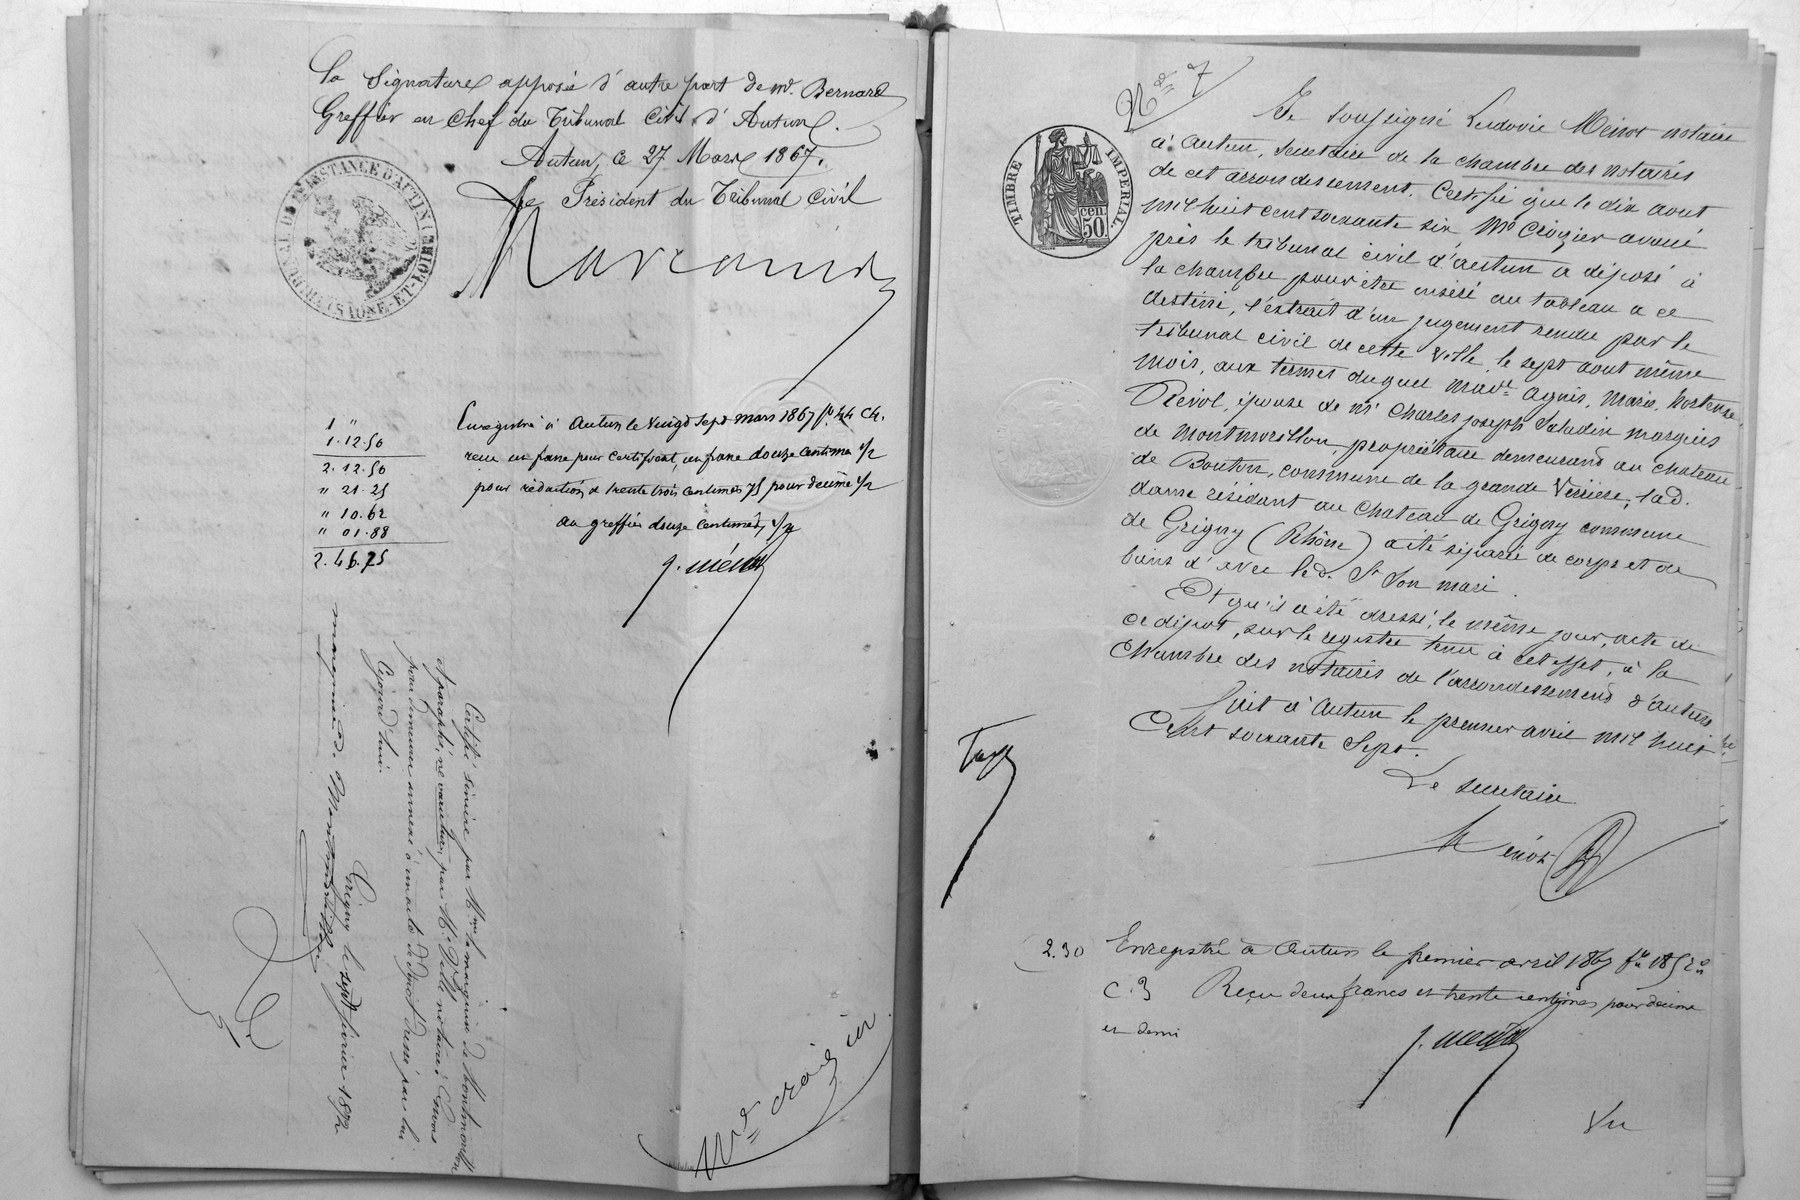 La Signature apposée d'autre part de Mr. Bernard
Greffier en Chef du Tribunal Civil d'Autun.
Autun, ce 27 Mars 1867.
Le Président du Tribunal Civil
TRIBUNAL DE 1RE INSTANCE D'AUTUN (SAONE-ET-LOIRE)
1 "
1.12.50
2.12.50
" 21.25
" 10.62
" 01.88
2.46.75
Enregistré à Autun le Vingt Sept mars 1867 fo. 44 Ch.
reçu un franc pour certificat, un franc douze centimes 1/2
pour rédaction & trente trois centimes 75 pour décime 1/2
au greffier douze centimes 1/2
Certifié sincère par Mme la marquise de Montmorillon
et paraphé, ne varietur, par Me notaire à Givors
pour demeurer annexé à un acte de dépôt dressé par lui
Cejourd'hui.
Grigny le sept février 1872
marquise de Montmorillon
Me Croizier
N° 7
TIMBRE IMPERIAL
50 cen.
Je soussigné Ludovic Ménot notaire
à Autun, secrétaire de la chambre des notaires
de cet arrondissement. Certifie que le dix aout
mil huit cent soixante six Me Croizier avoué
près le tribunal civil d'autun a déposé à
la chambre pour être inséré au tableau a ce
destiné, l'extrait d'un jugement rendu par le
tribunal civil de cette ville, le sept aout même
mois, aux termes duquel made. Agnès, Marie, Hortense,
épouse de Mr Charles Joseph Saladin marquis
de Montmorillon, propriétaire demeurant au chateau
de Bouton, commune de la grande Verrière, lad.
dame résidant au Chateau de Grigny commune
de Grigny (Rhône) a été séparée de corps et de
biens d'avec led. Sr. son mari.
Et qu'il a été dressé, le même jour, acte de
ce dépot, sur le registre tenu à cet effet, à la
Chambre des notaires de l'arrondissement d'autun
fait à Autun le premier avril mil huit
Cent soixante Sept.
Le secrétaire
Ménot
2.30 Enregistré à Autun le premier avril 1867 fo 185 Vo
C. 3 Reçu deux francs et trente centimes pour décime
et demi
Vu